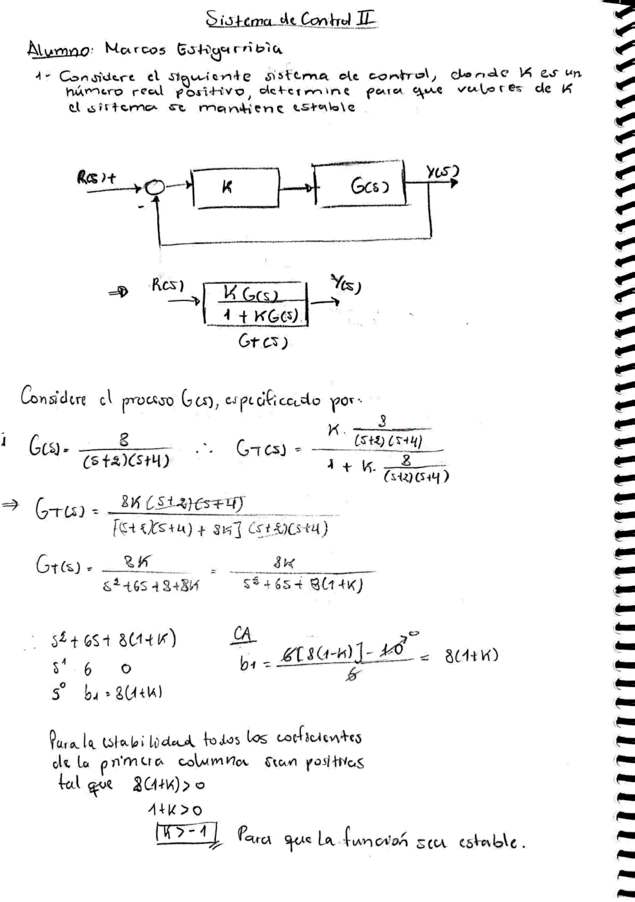 Sistema de Control II
Alumno: Marcos Estigarribia
1- Considere el siguiente sistema de control, donde K es un
número real positivo, determine para que valores de K
el sistema se mantiene estable
R(s) + - K G(s) Y(s)
⇒ R(s) K G(s) / 1 + KG(s) Y(s)
GT(s)
Considere el proceso G(s), especificado por:
i G(s) = 8 / (s+2)(s+4) ∴ GT(s) = K · 8 / (s+2)(s+4) / 1 + K · 8 / (s+2)(s+4)
⇒ GT(s) = 8K (s+2)(s+4) / [(s+2)(s+4) + 8K] (s+2)(s+4)
GT(s) = 8K / s² + 6s + 8 + 8K = 8K / s² + 6s + 8(1+K)
∴ s² + 6s + 8(1+K) CA
s¹ 6 0 b1 = 6[8(1-K)] - 1·0 → 0 / 6 = 8(1+K)
s⁰ b1 = 8(1+K)
Para la estabilidad todos los coeficientes
de la primera columna sean positivas
tal que 8(1+K) > 0
1+K > 0
K > -1 Para que la función sea estable.